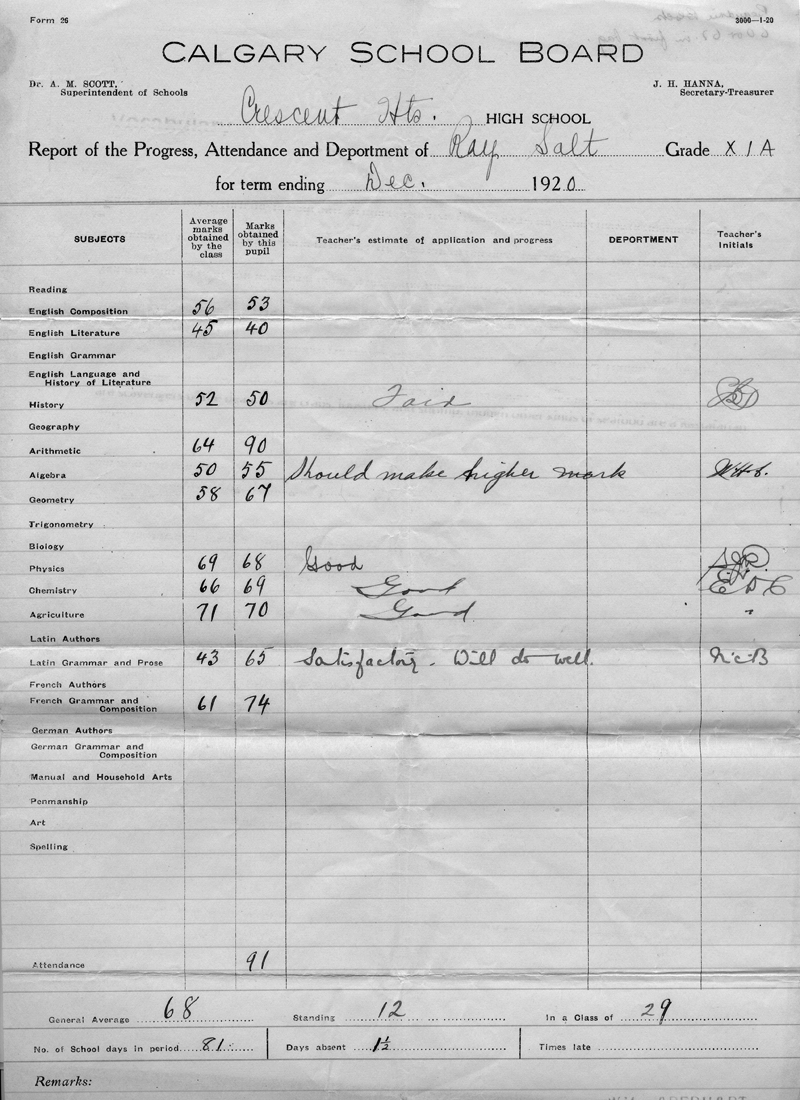 Form 26
3000—1-20
CALGARY SCHOOL BOARD
Dr. A. M. SCOTT,
Superintendent of Schools
J. H. HANNA,
Secretary-Treasurer
Crescent Hts. HIGH SCHOOL
Report of the Progress, Attendance and Deportment of Ray Salt Grade XIA
for term ending Dec. 1920
SUBJECTS
Average marks obtained by the class
Marks obtained by this pupil
Teacher's estimate of application and progress
DEPORTMENT
Teacher's Initials
Reading
English Composition 56 53
English Literature 45 40
English Grammar
English Language and
History of Literature
History 52 50 Fair
Geography
Arithmetic 64 90
Algebra 50 55 Should make higher mark
Geometry 58 67
Trigonometry
Biology
Physics 69 68 Good
Chemistry 66 69 Good
Agriculture 71 70 Good.
Latin Authors
Latin Grammar and Prose 43 65 Satisfactory. Will do well. McB
French Authors
French Grammar and
Composition 61 74
German Authors
German Grammar and
Composition
Manual and Household Arts
Penmanship
Art
Spelling
Attendance 91
General Average 68 Standing 12 In a Class of 29
No. of School days in period 81 Days absent 1½ Times late
Remarks: